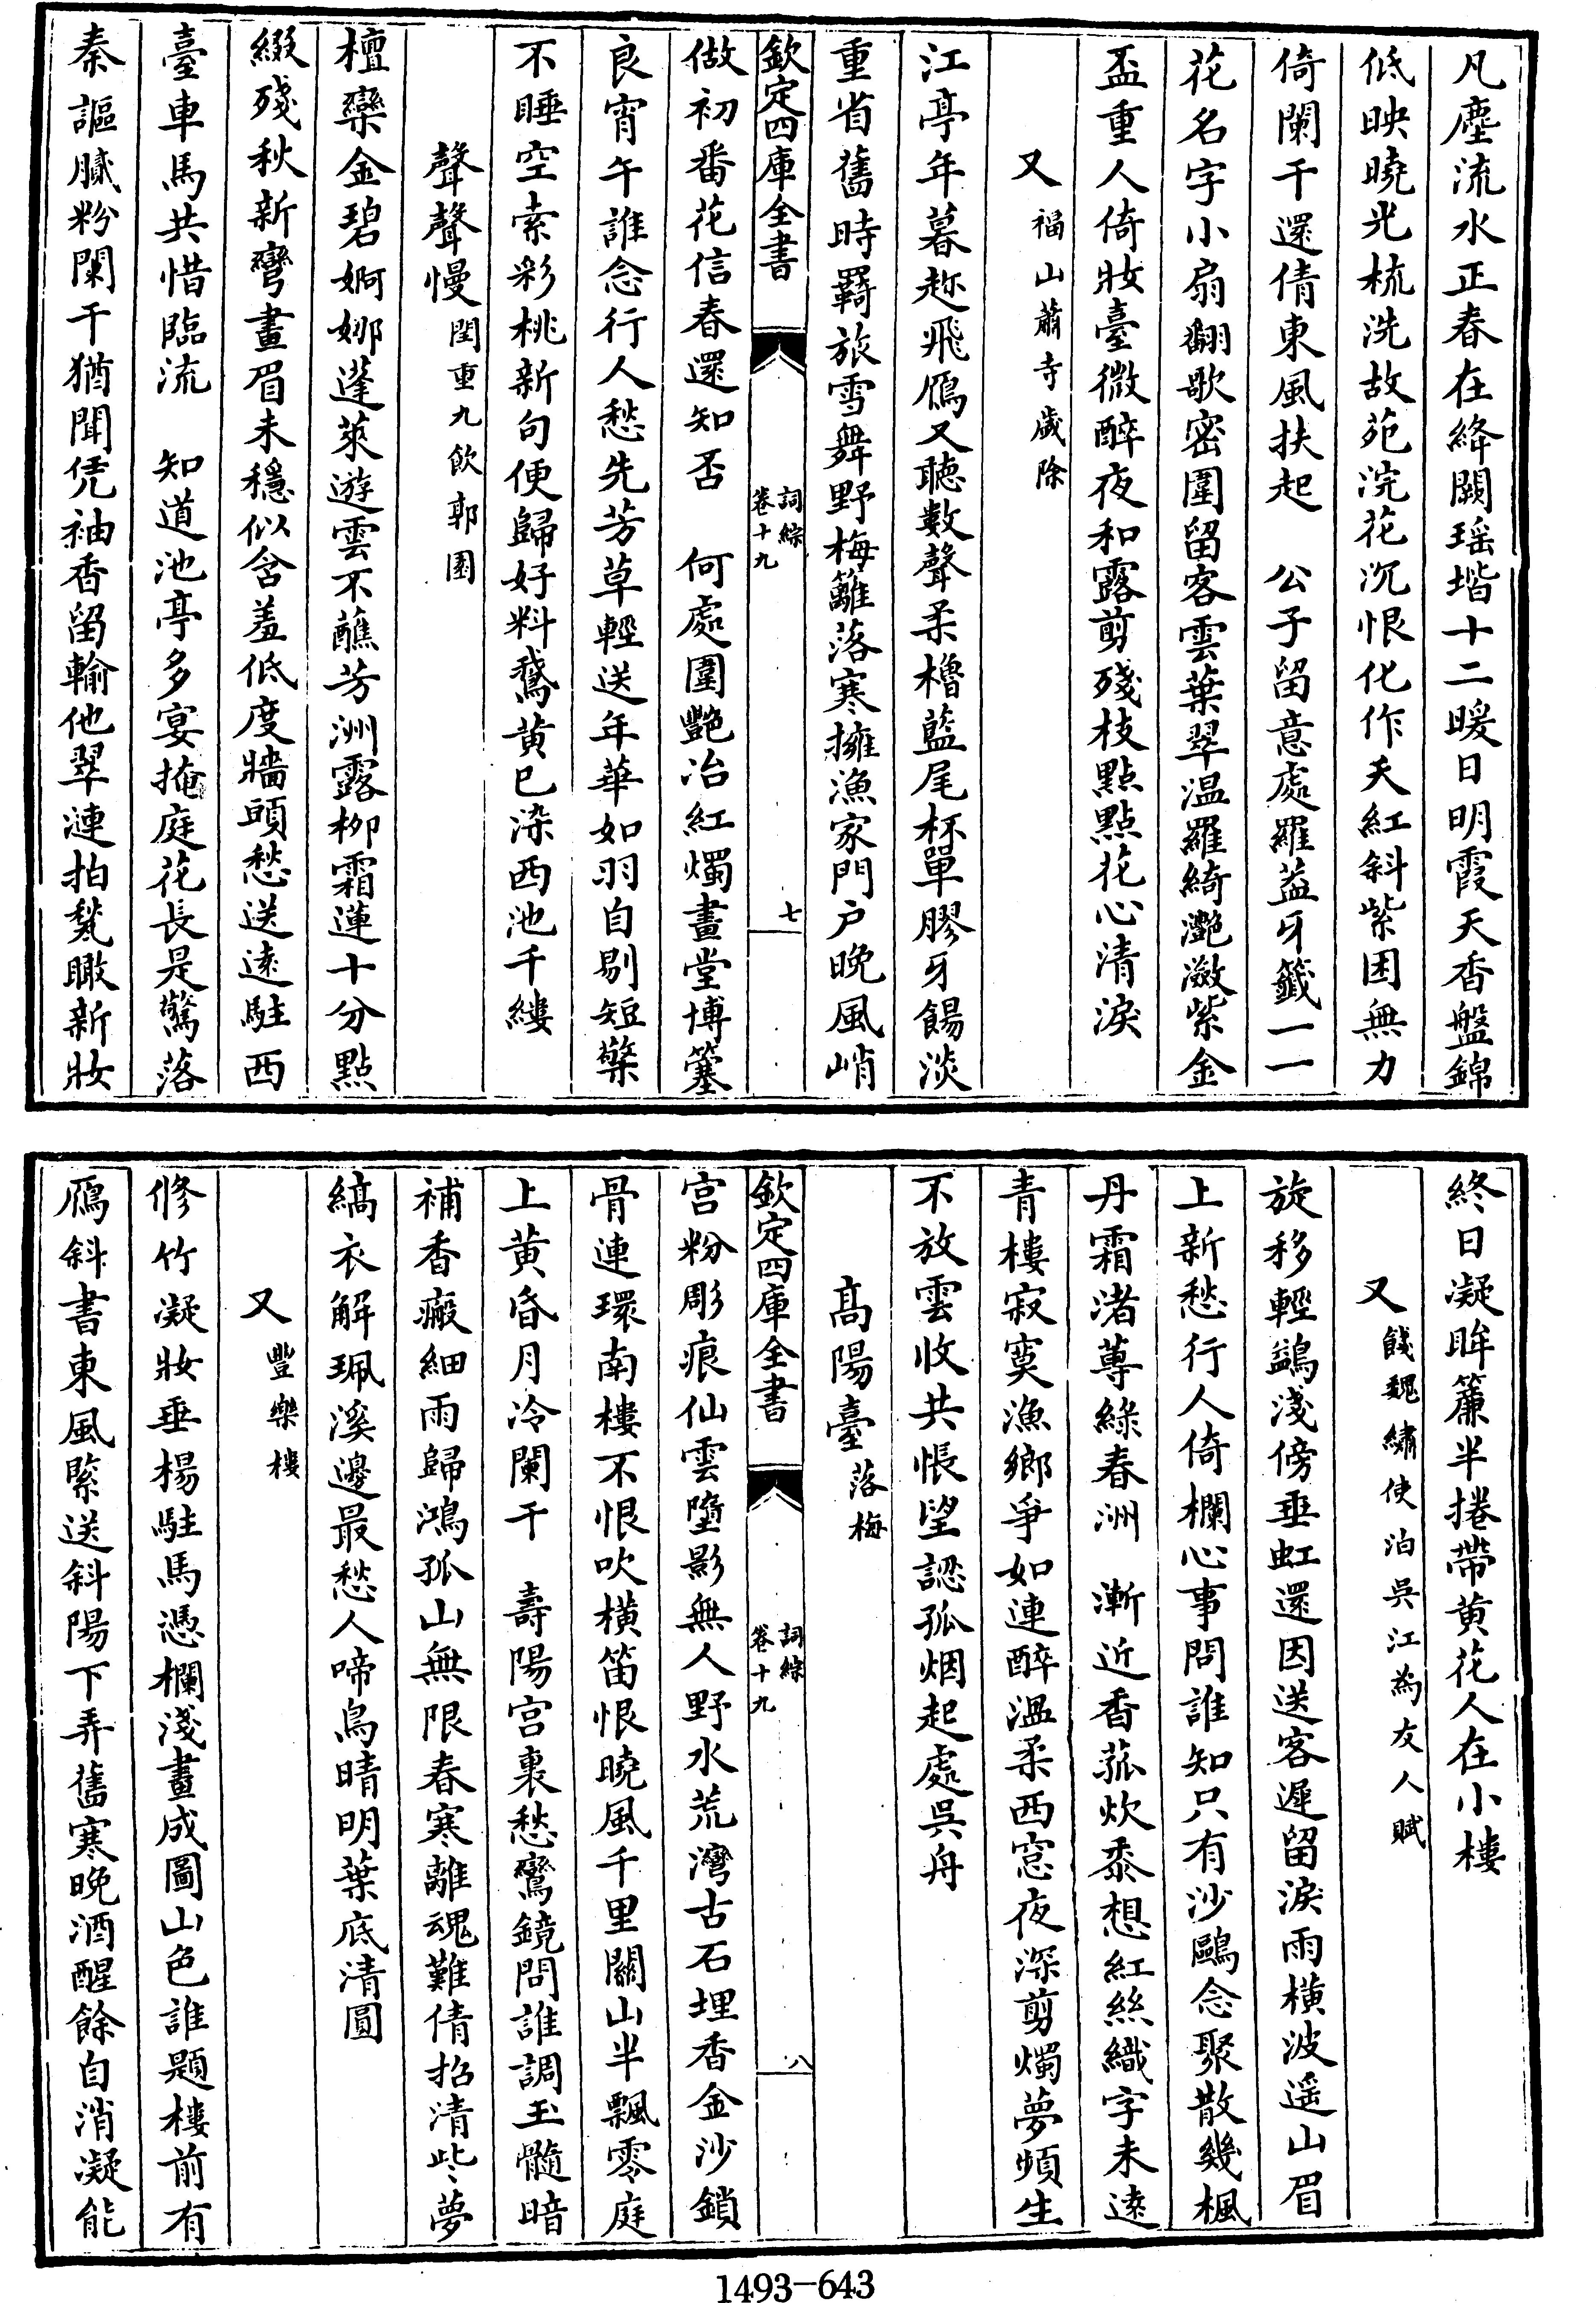 凡塵流水正春在絳闕瑶堦十二暖日明霞天香盤錦
低映曉光梳洗故苑浣花沉恨化作夭紅斜紫困無力
倚闌干還倩東風扶起　公子留意處羅蓋牙籖一一
花名字小扇翻歌密圍留客雲葉翠温羅綺灔潋紫金
盃重人倚妝臺微醉夜和露剪殘枝點點花心清淚
又福山蕭寺歲除
江亭年暮趂飛鴈又聽數聲柔櫓藍尾杯單膠牙餳淡
重省舊時羇旅雪舞野梅籬落寒擁漁家門戶晚風峭
欽定四庫全書
詞綜
卷十九
七
做初番花信春還知否　何處圍艷冶紅燭畫堂博簺
良宵午誰念行人愁先芳草輕送年華如羽自剔短檠
不睡空索彩桃新句便歸好料鵞黃已染西池千縷
聲聲慢閏重九飲郭園
檀欒金碧婀娜蓬萊遊雲不蘸芳洲露柳霜蓮十分點
綴殘秋新彎畫眉未穩似含羞低度牆頭愁送遠駐西
臺車馬共惜臨流　知道池亭多宴掩庭花長是驚落
秦謳膩粉闌干猶聞凭袖香留輸他翠漣拍甃瞰新妝
終日凝眸簾半捲帶黃花人在小樓
又餞魏繡使泊吳江為友人賦
旋移輕鷁淺傍垂虹還因送客遲留淚雨橫波遥山眉
上新愁行人倚欄心事問誰知只有沙鷗念聚散幾楓
丹霜渚蓴綠春洲　漸近香菰炊黍想紅絲織字未遠
青樓寂寞漁鄉爭如連醉溫柔西窓夜深剪燭夢頻生
不放雲收共悵望認孤烟起處吳舟
高陽臺落梅
欽定四庫全書
詞綜
卷十九
八
宮粉彫痕仙雲墮影無人野水荒灣古石埋香金沙鎖
骨連環南樓不恨吹橫笛恨曉風千里關山半飄零庭
上黃昏月冷闌干　壽陽宮裏愁鸞鏡問誰調玉髓暗
補香瘢細雨歸鴻孤山無限春寒離魂難倩招清些夢
縞衣解珮溪邊最愁人啼鳥晴明葉底清圓
又豐樂樓
修竹凝妝垂楊駐馬憑欄淺畫成圖山色誰題樓前有
鴈斜書東風緊送斜陽下弄舊寒晚酒醒餘自消凝能
1493-643